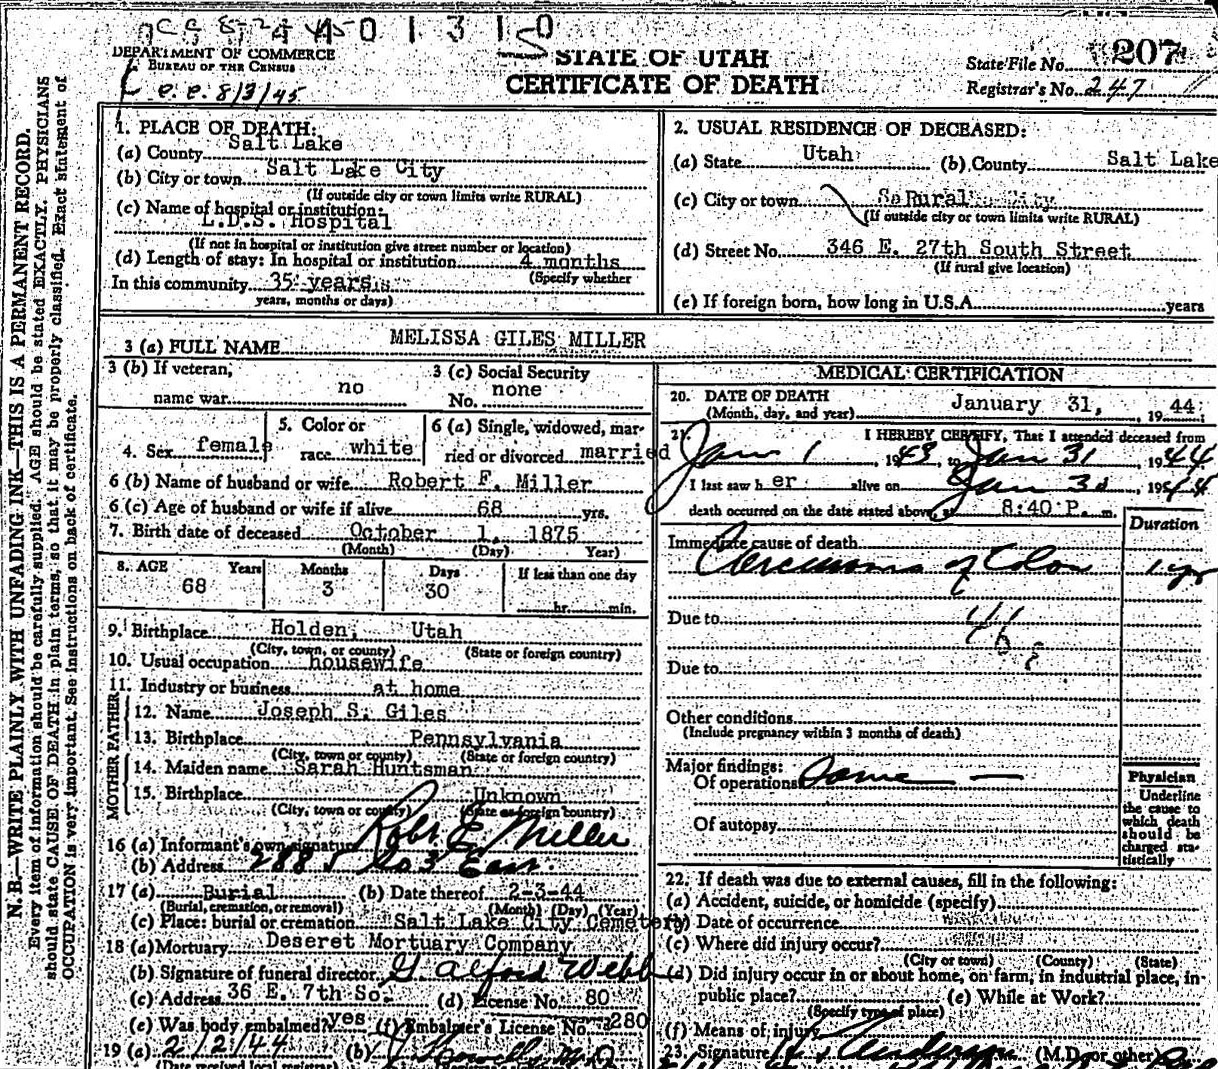 DEPARTMENT OF COMMERCE
BUREAU OF THE CENSUS
STATE OF UTAH
CERTIFICATE OF DEATH
State File No. 207
Registrar's No. 247
N. B.—WRITE PLAINLY WITH UNFADING INK—THIS IS A PERMANENT RECORD.
Every item of information should be carefully supplied. AGE should be stated EXACTLY. PHYSICIANS
should state CAUSE OF DEATH in plain terms, so that it may be properly classified. Exact statement of
OCCUPATION is very important. See instructions on back of certificate.
1. PLACE OF DEATH:
(a) County Salt Lake
(b) City or town Salt Lake City
(If outside city or town limits write RURAL)
(c) Name of hospital or institution:
L.D.S. Hospital
(If not in hospital or institution give street number or location)
(d) Length of stay: In hospital or institution 4 months
(Specify whether
In this community 35 years
years, months or days)
2. USUAL RESIDENCE OF DECEASED:
(a) State Utah (b) County Salt Lake
(c) City or town Rural
(If outside city or town limits write RURAL)
(d) Street No. 346 E. 27th South Street
(If rural give location)
(e) If foreign born, how long in U.S.A. years
3 (a) FULL NAME MELISSA GILES MILLER
3 (b) If veteran, name war no
3 (c) Social Security No. none
4. Sex female
5. Color or race white
6 (a) Single, widowed, married or divorced married
6 (b) Name of husband or wife Robert F. Miller
6 (c) Age of husband or wife if alive 68 yrs.
7. Birth date of deceased October 1, 1875
(Month) (Day) Year)
8. AGE Years Months Days If less than one day
68 3 30 hr. min.
9. Birthplace Holden, Utah
(City, town, or county) (State or foreign country)
10. Usual occupation housewife
11. Industry or business at home
FATHER
12. Name Joseph S. Giles
13. Birthplace Pennsylvania
(City, town or county) (State or foreign country)
MOTHER
14. Maiden name Sarah Huntsman
15. Birthplace Unknown
(City, town or county) (State or foreign country)
16 (a) Informant's own signature Robt F Miller
(b) Address 2885 So 3 East
17 (a) Burial (b) Date thereof 2-3-44
(Burial, cremation, or removal) (Month) (Day) (Year)
(c) Place: burial or cremation Salt Lake City Cemetery
18 (a) Mortuary Deseret Mortuary Company
(b) Signature of funeral director G. Alford Webb
(c) Address 36 E. 7th So. (d) License No. 80
(e) Was body embalmed? yes (f) Embalmer's License No. 280
19 (a) 2/2/44 (b)
(Date received local registrar)
MEDICAL CERTIFICATION
20. DATE OF DEATH
(Month, day, and year) January 31, 1944
21. I HEREBY CERTIFY, That I attended deceased from
Jan 1, 1943, to Jan 31 1944
I last saw her alive on Jan 3, 1944
death occurred on the date stated above, at 8:40 P. m.
Duration
Immediate cause of death
Carcinoma of Colon 1 yr
Due to
Due to
Other conditions
(Include pregnancy within 3 months of death)
Major findings:
Of operations Same
Of autopsy
Physician
Underline
the cause to
which death
should be
charged sta-
tistically
22. If death was due to external causes, fill in the following:
(a) Accident, suicide, or homicide (specify)
(b) Date of occurrence
(c) Where did injury occur?
(City or town) (County) (State)
(d) Did injury occur in or about home, on farm, in industrial place, in
public place? (e) While at Work?
(Specify type of place)
(f) Means of injury
23. Signature (M.D. or other)